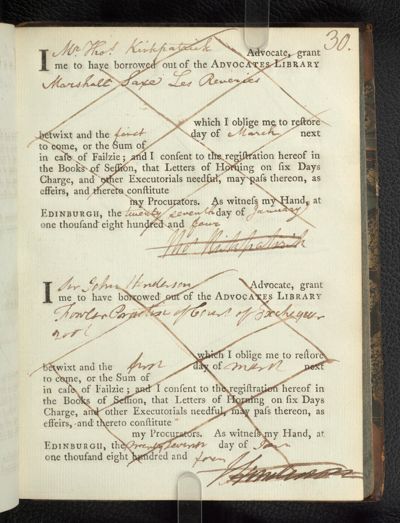 30.
I Mr. Thos. Kirkpatrick Advocate, grant
me to have borrowed out of the ADVOCATES LIBRARY
Marshall Saxe Les Reveries
which I oblige me to reſtore
betwixt and the first day of March next
to come, or the Sum of
in caſe of Failzie; and I conſent to the regiſtration hereof in
the Books of Seſſion, that Letters of Horning on ſix Days
Charge, and other Executorials needful, may paſs thereon, as
effeirs, and thereto conſtitute
my Procurators. As witneſs my Hand, at
EDINBURGH, the twenty seventh day of January
one thouſand eight hundred and four
Thos Kirkpatrick
I Sir John Henderson Advocate, grant
me to have borrowed out of the ADVOCATES LIBRARY
Fowler Practise of Court of Exchequer
which I oblige me to reſtore
betwixt and the first day of March next
to come, or the Sum of
in caſe of Failzie; and I conſent to the regiſtration hereof in
the Books of Seſſion, that Letters of Horning on ſix Days
Charge, and other Executorials needful, may paſs thereon, as
effeirs, and thereto conſtitute
my Procurators. As witneſs my Hand, at
EDINBURGH, the twenty seventh day of Jan
one thouſand eight hundred and four